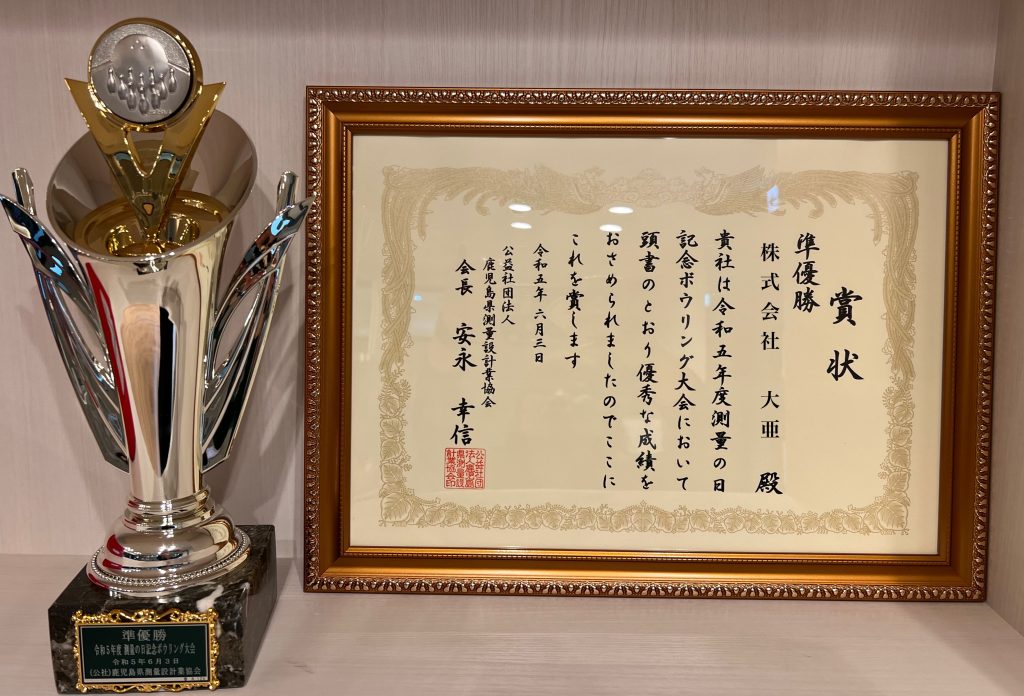 賞状
準優勝
株式会社 大亜 殿
貴社は令和五年度測量の日
記念ボウリング大会において
頭書のとおり優秀な成績を
おさめられましたのでここに
これを賞します
令和五年六月三日
公益社団法人
鹿児島県測量設計業協会
会長 安永 幸信
準優勝
令和5年度 測量の日記念ボウリング大会
令和5年6月3日
(公社)鹿児島県測量設計業協会